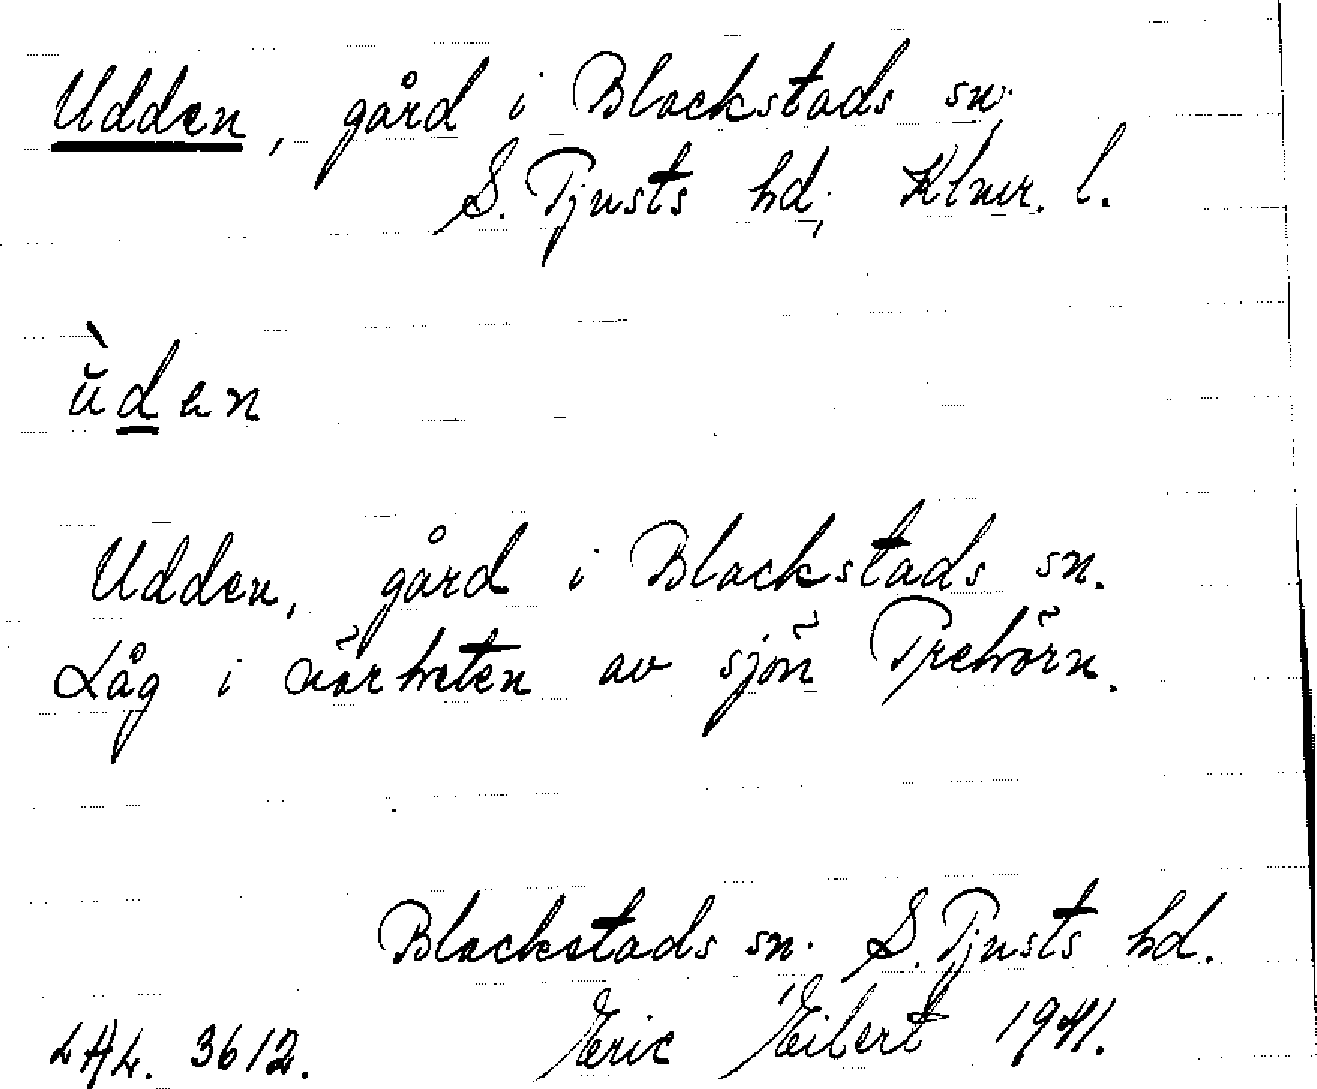 Udden, gård i Blackstads sn.
S. Tjusts hd, Klmr. l.
ùden
Udden, gård i Blackstads sn.
Låg i närheten av sjön Trehörn.
Blackstads sn. S. Tjusts hd.
LAL. 3612. Eric Eilert 1941.